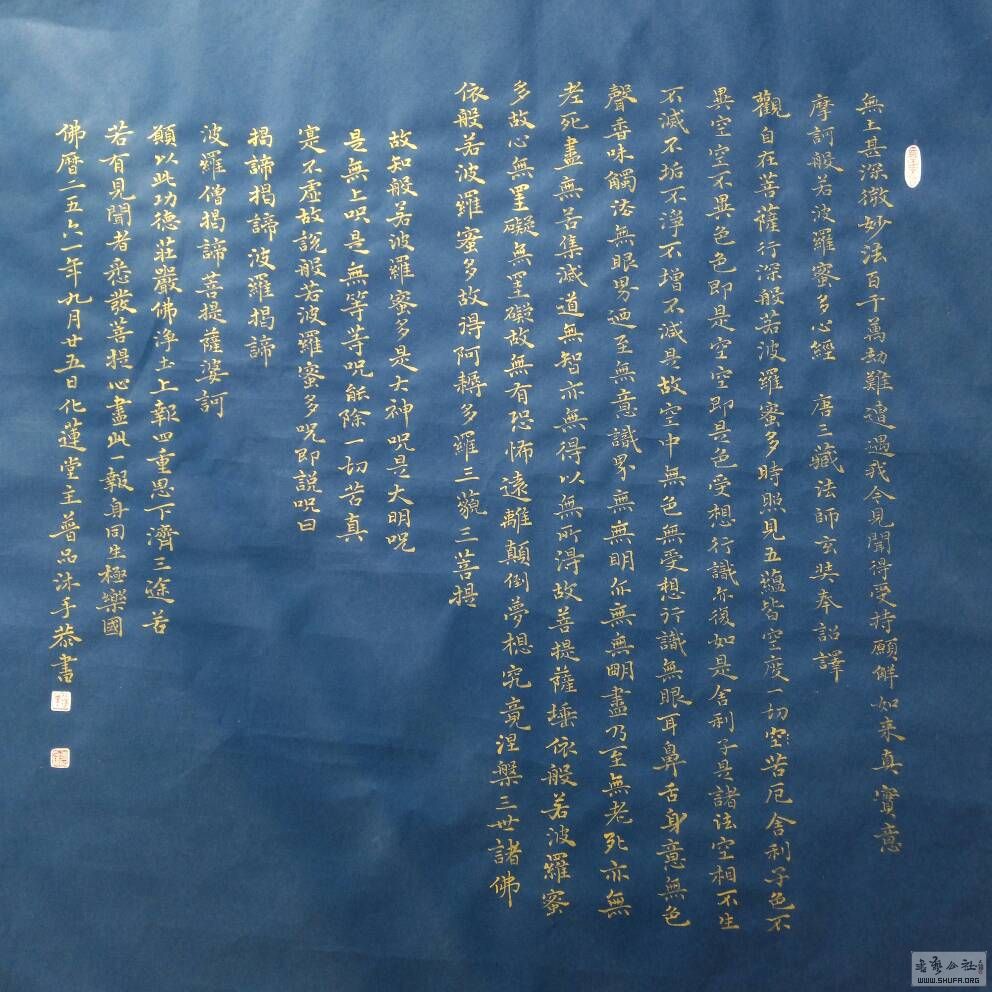 無上甚深微妙法百千萬劫難遭遇我今見聞得受持願解如来真實意
摩訶般若波羅蜜多心經 唐三藏法師玄奘奉詔譯
觀自在菩薩行深般若波羅蜜多時照見五蘊皆空度一切空苦厄舍利子色不
異空空不異色色即是空空即是色受想行識亦復如是舍利子是諸法空相不生
不滅不垢不淨不增不減是故空中無色無受想行識無眼耳鼻舌身意無色
聲香味觸法無眼界廼至無意識界無無明亦無無明盡乃至無老死亦無
老死盡無苦集滅道無智亦無得以無所得故菩提薩埵依般若波羅蜜
多故心無罣礙無罣礙故無有恐怖遠離顛倒夢想究竟涅槃三世諸佛
依般若波羅蜜多故得阿耨多羅三藐三菩提
故知般若波羅蜜多是大神呪是大明呪
是無上呪是無等等呪能除一切苦真
寔不虛故說般若波羅蜜多呪即說呪曰
揭諦揭諦波羅揭諦
波羅僧揭諦菩提薩婆訶
願以此功德莊嚴佛淨土上報四重恩下濟三途苦
若有見聞者悉發菩提心盡此一報身同生極樂國
佛曆二五六一年九月廿五日化蓮堂王普品沐手恭書
WWW.SHUFA.ORG